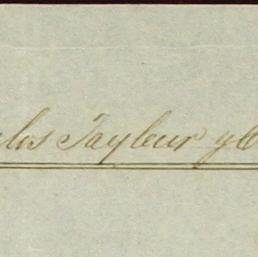 los Tayleur y C